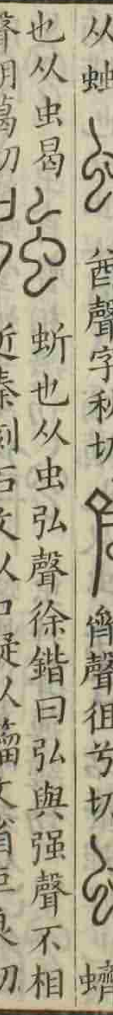 酋聲字秋切 聲徂兮切 蠐
也从虫曷 蚚也从虫弘聲徐鍇曰弘與强聲不相
聲胡葛切 近秦刻石文从口疑从籀文省巨良切